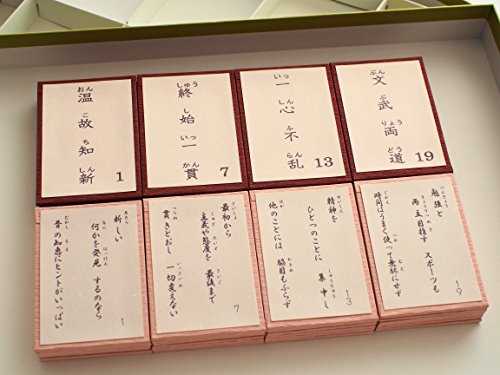 温故知新
おん こ ち しん
1
終始一貫
しゅう し いっ かん
7
一心不乱
いっ しん ふ らん
13
文武両道
ぶん ぶ りょう どう
19
新しい
何かを発見するのなら
昔の知恵にヒントがいっぱい
1
最初から
主義や態度を 最後まで
貫きとおし 一切変えない
7
精神を
ひとつのことに 集中し
他のことには 脇目もふらず
13
勉強と
両立目指す スポーツも
時間はうまく使って無駄にせず
19